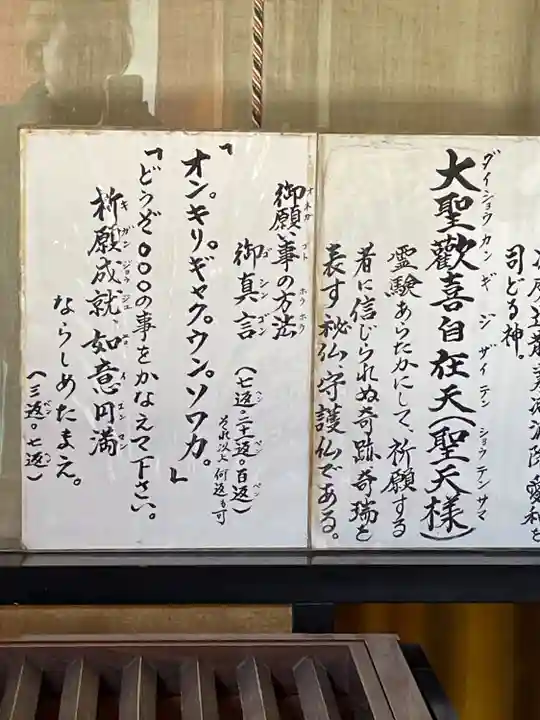 司どる神。
大聖歓喜自在天(聖天様)
ダイショウカンギジザイテンショウテンサマ
霊験あらたかにして、祈願する
者に信じられぬ奇跡奇瑞を
表す秘仏、守護仏である。
御願い事の方法
オネガゴトホウホウ
御真言
ゴシンゴン
(七返。二十一返。百返)
ペンペンペン
それ以上何返も可
「オン。キリ。ギャク。ウン。ソワカ。」
「どうぞ○○○の事をかなえて下さい。
祈願成就、如意円満
キガンジョウジュニョイエンマン
ならしめたまえ。
(三返。七返)
ペンペン